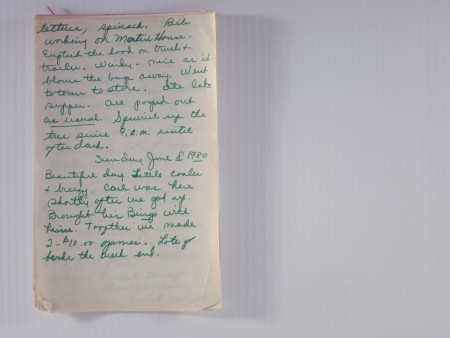 lettuce, spinach. Bill
working on Martin House.
Emptied the load on truck &
trailer. Windy - nice as it
blows the bugs away. Went
to town to store. Ate late
supper. All poged out
as usual. Squirrel up the
tree since 9 A.M. until
after dark.
Sunday June 8 1980
Beautiful day little cooler
& breezy. Carl was here
shortly after we got up.
Brought his Bingo with
him. Together we made
2 - $10.00 games. Lots of
boats the week end.